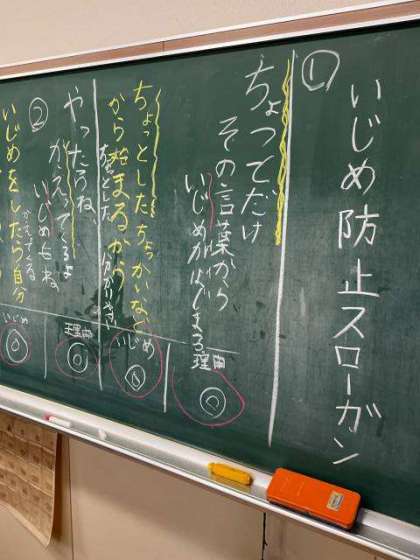 いじめ防止スローガン
①
ちょっとだけ
その言葉から
いじめがはじまる
理由
ちょっとしたちょっかいなど
から始まるから
いじめ
②
やったらね、
かえってくるよ
いじめもね
かえってくる
理由
いじめをしたら自分
いじめ